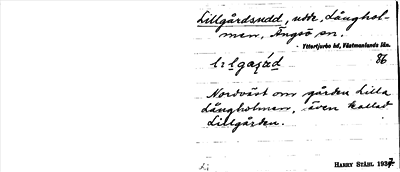 Lillgårdsudd, udde, Långhol-
men, Ängsö sn.
Yttertjurbo hd, Västmanlands län.
86
Nordväst om gården Lilla
Långholmen, även kallad
Lillgården.
HARRY STÅHL 1937